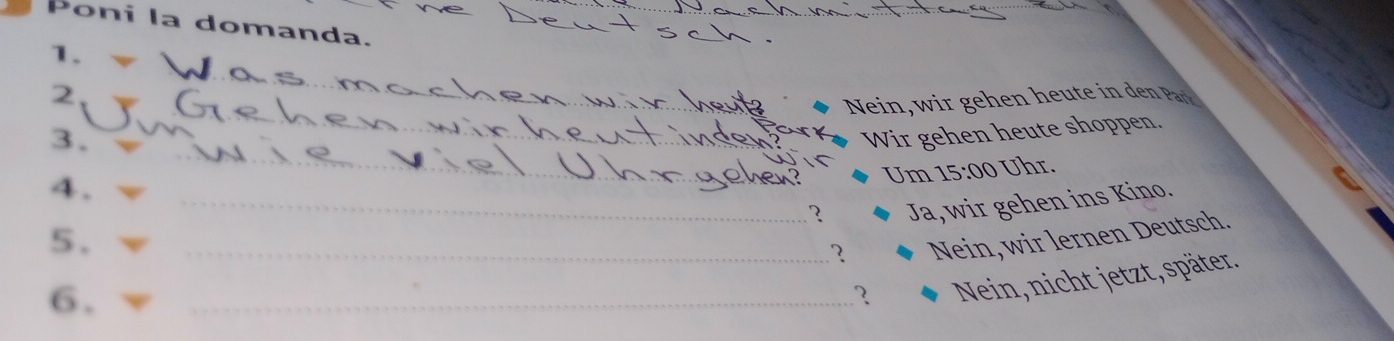 Deutsch.
Poni la domanda.
1. Was machen wir heute? Nein, wir gehen heute in den Park.
2. Gehen wir heut in den Park? Wir gehen heute shoppen.
3. Um wie viel Uhr gehen wir? Um 15:00 Uhr.
4. ? Ja, wir gehen ins Kino.
5. ? Nein, wir lernen Deutsch.
6. ? Nein, nicht jetzt, später.